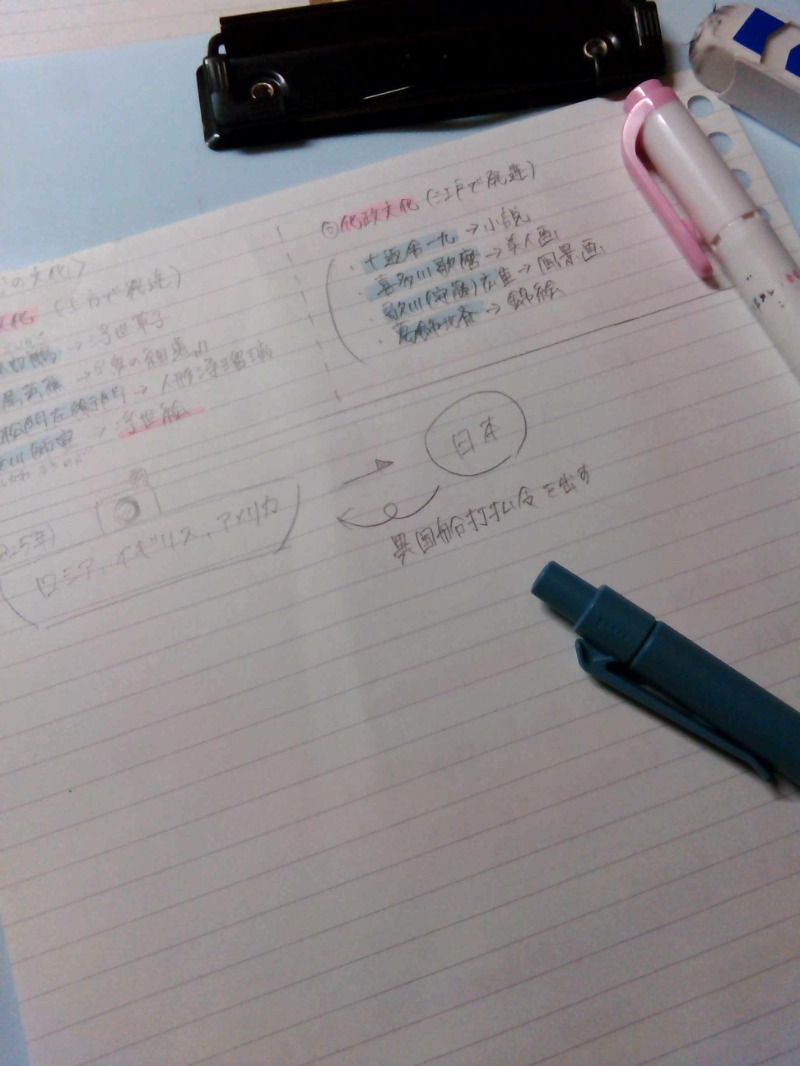 の文化〉
文化 (上方で発達)
→ 浮世草子
芭蕉 →
松門左衛門 → 人形浄瑠璃
川師宣 → 浮世絵
化政文化 (江戸で発達)
・十返舎一九 → 小説
・喜多川歌麿 → 美人画
・歌川(安藤)広重 → 風景画
・葛飾北斎 → 錦絵
日本
ロシア、イギリス、アメリカ
異国船打払令を出す